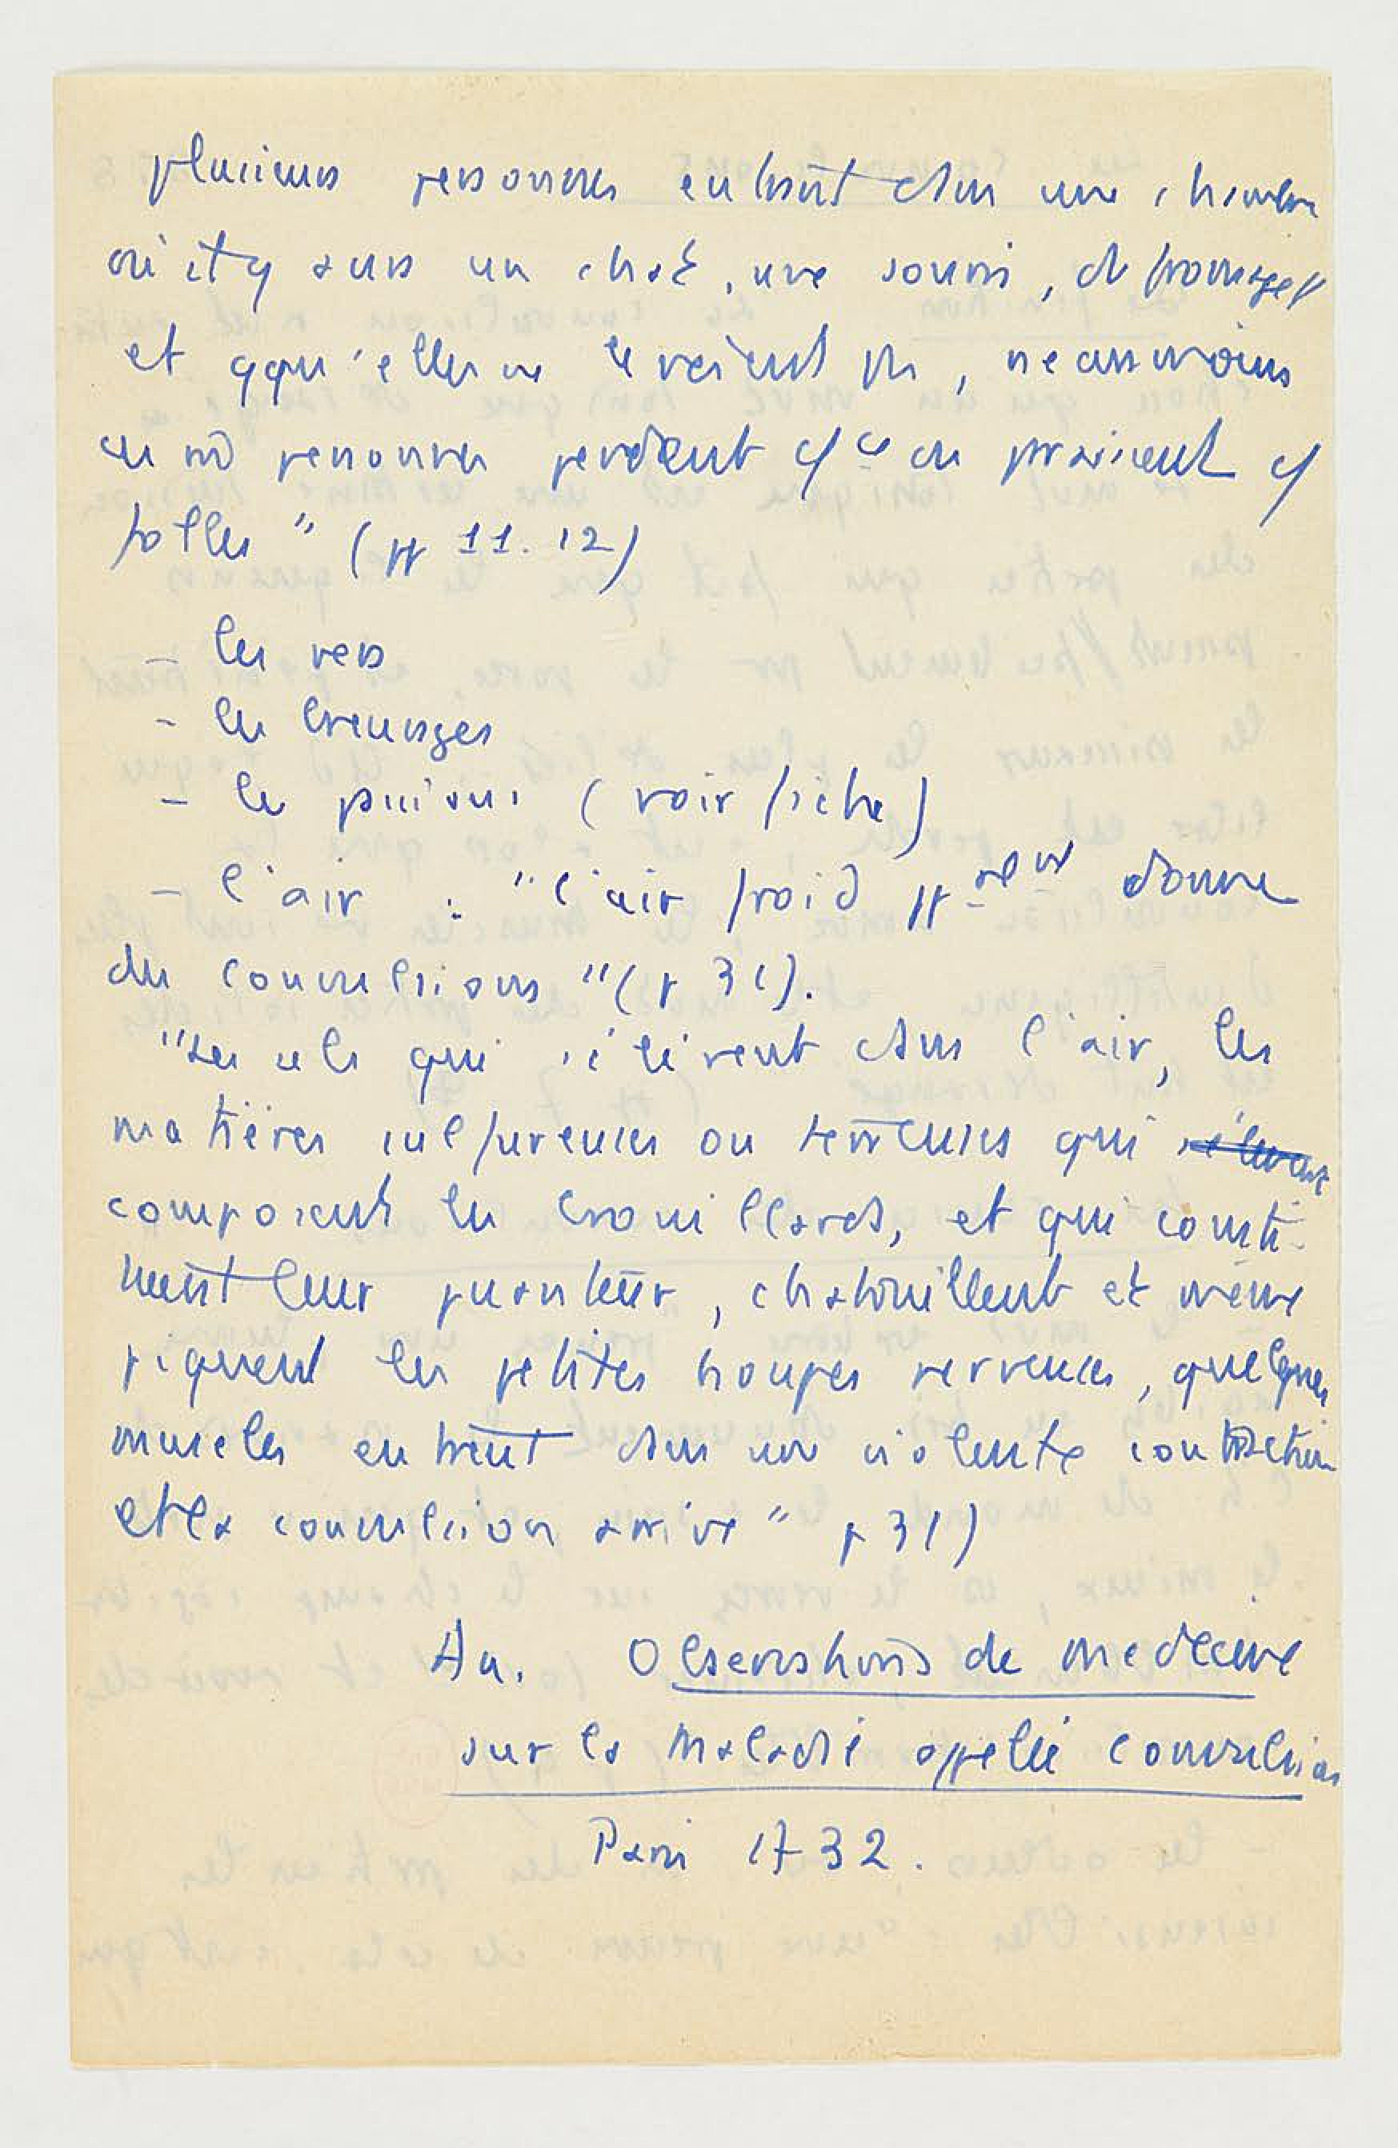 plusieurs personnes entrent dans une chambre
où il y aura un chat, une souris, du fromage,
et qqu'elles ne le voient pas, neansmoins
ces m̂ personnes perdent c/ce ou paraissent c/
folles" (pp 11.12)
- les vers
- les breuvages
- les passions (voir fiche)
- l'air : "l'air froid donne
des convulsions" (p 31).
"Les sels qui s'élèvent dans l'air, les
matières sulfureuses ou terreuses qui s'élèvent
composent les brouillards, et qui conti-
nent leur puanteur, chatouillent et même
piquent les petites houpes nerveuses, quelques
muscles entrent dans une violente contraction
et la convulsion arrive" p 31)
An. Observations de medecine
sur la maladie appelée convulsion
Paris 1732.